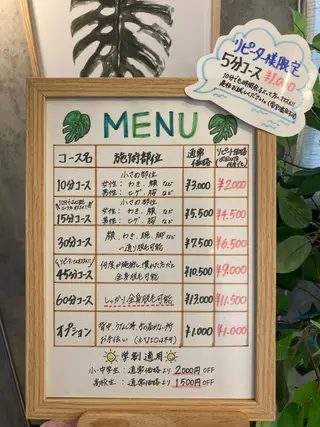 リピーター様限定
5分コース ¥1,000
MENU
コース名 施術部位 通常価格 リピート価格
小さめ部位
10分コース 女性：わき、顔 など ¥3,000 ¥2,000
男性：ヒゲ、胸 など
小さめ部位
15分コース 女性：わき、顔 など ¥5,500 ¥4,500
男性：ヒゲ、胸 など
30分コース 顔、わき、腕、脚など ¥7,500 ¥6,500
一通り脱毛可能
45分コース 何度か施術し慣れた方だと ¥10,500 ¥9,000
全身脱毛可能
60分コース しっかり全身脱毛可能 ¥13,000 ¥11,500
オプション 背中、うなじ等 手の届かない所 ¥1,000 ¥1,000
お手伝い
学割適用
小・中学生：通常価格より 2000円OFF
高校生：通常価格より 1500円OFF